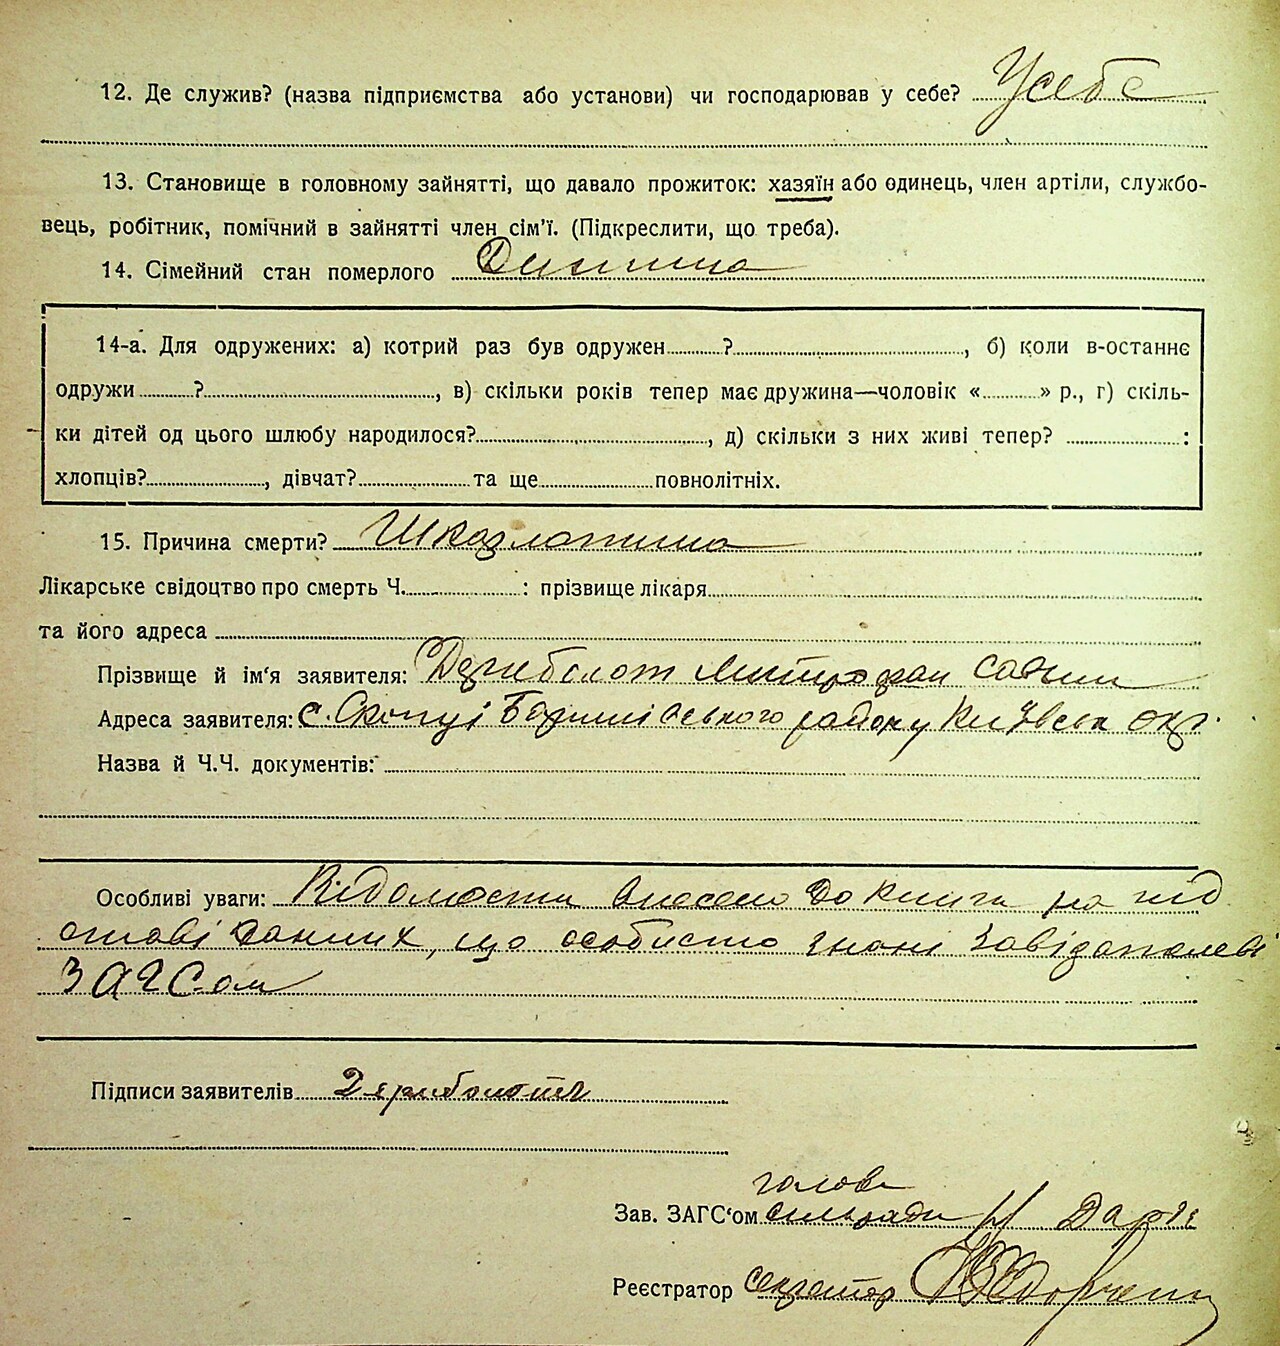 12. Де служив? (назва підприємства або установи) чи господарював у себе? У себе
13. Становище в головному зайнятті, що давало прожиток: хазяїн або одинець, член артіли, службо-
вець, робітник, помічний в зайнятті член сім'ї. (Підкреслити, що треба).
14. Сімейний стан померлого Дитина
14-а. Для одружених: а) котрий раз був одружен ?, б) коли в-останнє
одружи ?, в) скільки років тепер має дружина—чоловік « » р., г) скіль-
ки дітей од цього шлюбу народилося?, д) скільки з них живі тепер? :
хлопців?, дівчат? та ще повнолітніх.
15. Причина смерти? Шкарлатина
Лікарське свідоцтво про смерть Ч. : прізвище лікаря
та його адреса
Прізвище й ім'я заявителя: Дериболот Митрофан
Адреса заявителя: с. Скопці Баришівського району Київськ окр.
Назва й Ч.Ч. документів:
Особливі уваги: Відомости внесено до книги на під
ставі данних, що особисто знані Завідателеві
ЗАГСом
Підписи заявителів Дериболот
голова
Зав. ЗАГС'ом сільради
Реєстратор секретар